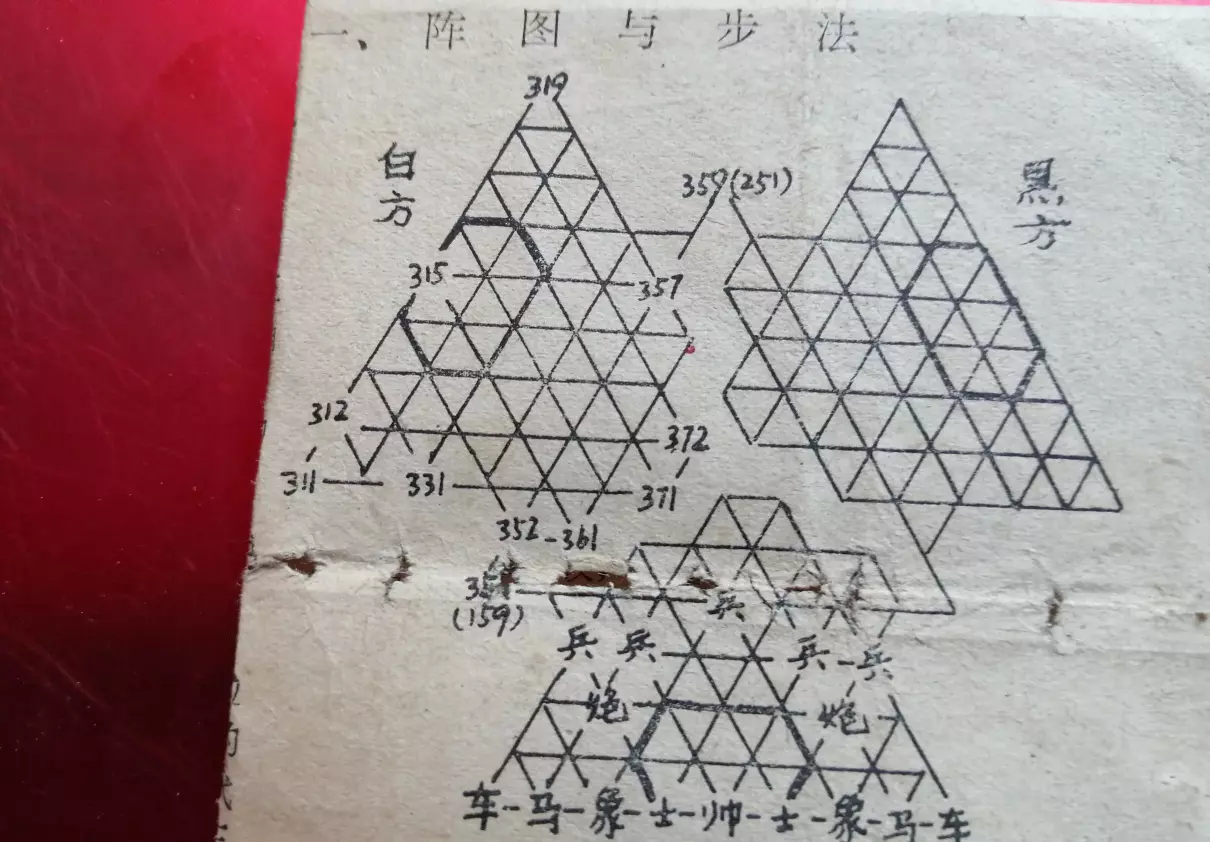 一、阵图与步法
319
白方
359(251)
黑方
315
357
312
372
311
331
371
352
361
(159)
兵
兵 兵 兵 兵
炮 炮
车 马 象 士 帅 士 象 马 车